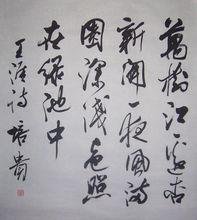 萬樹江邊杏
新開一夜風滿
園深淺色照
在綠池中
王涯詩 培貴